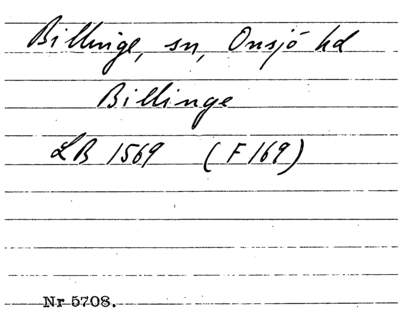 Billinge, sn, Onsjö hd
Billinge
LB 1569 (F 169)
Nr 5708.